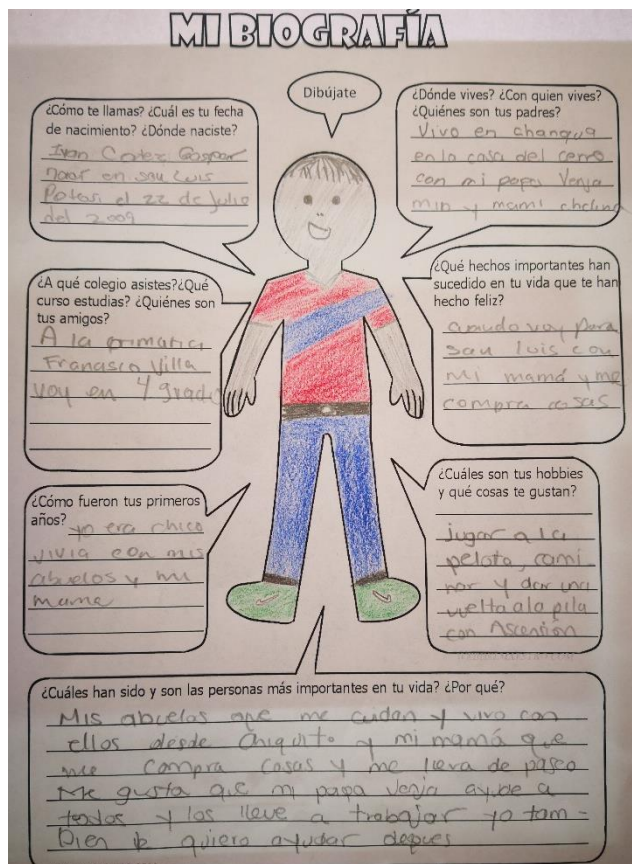 MI BIOGRAFÍA
Dibújate
¿Cómo te llamas? ¿Cuál es tu fecha
de nacimiento? ¿Dónde naciste?
Ivan Cortez Gaspar
naci en san Luis
Potosi el 22 de Julio
del 2009
¿Dónde vives? ¿Con quien vives?
¿Quiénes son tus padres?
Vivo en
en la casa del cerro
con mi papa Venja
min y mami chelina
¿A qué colegio asistes?¿Qué
curso estudias? ¿Quiénes son
tus amigos?
A la primaria
Francisco Villa
voy en 4 grado
¿Qué hechos importantes han
sucedido en tu vida que te han
hecho feliz?
cuando voy para
san luis con
mi mamá y me
compra cosas
¿Cómo fueron tus primeros
años?
yo era chico
vivia con mis
abuelos y mi
mama
¿Cuáles son tus hobbies
y qué cosas te gustan?
jugar a la
pelota, cami
nar y dar una
vuelta a la pila
con Ascención
¿Cuáles han sido y son las personas más importantes en tu vida? ¿Por qué?
Mis abuelos que me cuidan y vivo con
ellos desde chiquito y mi mamá que
me compra cosas y me lleva de paseo
Me gusta que mi papa venja ayude a
todos y los lleve a trabajar yo tam-
bien quiero ayudar depues